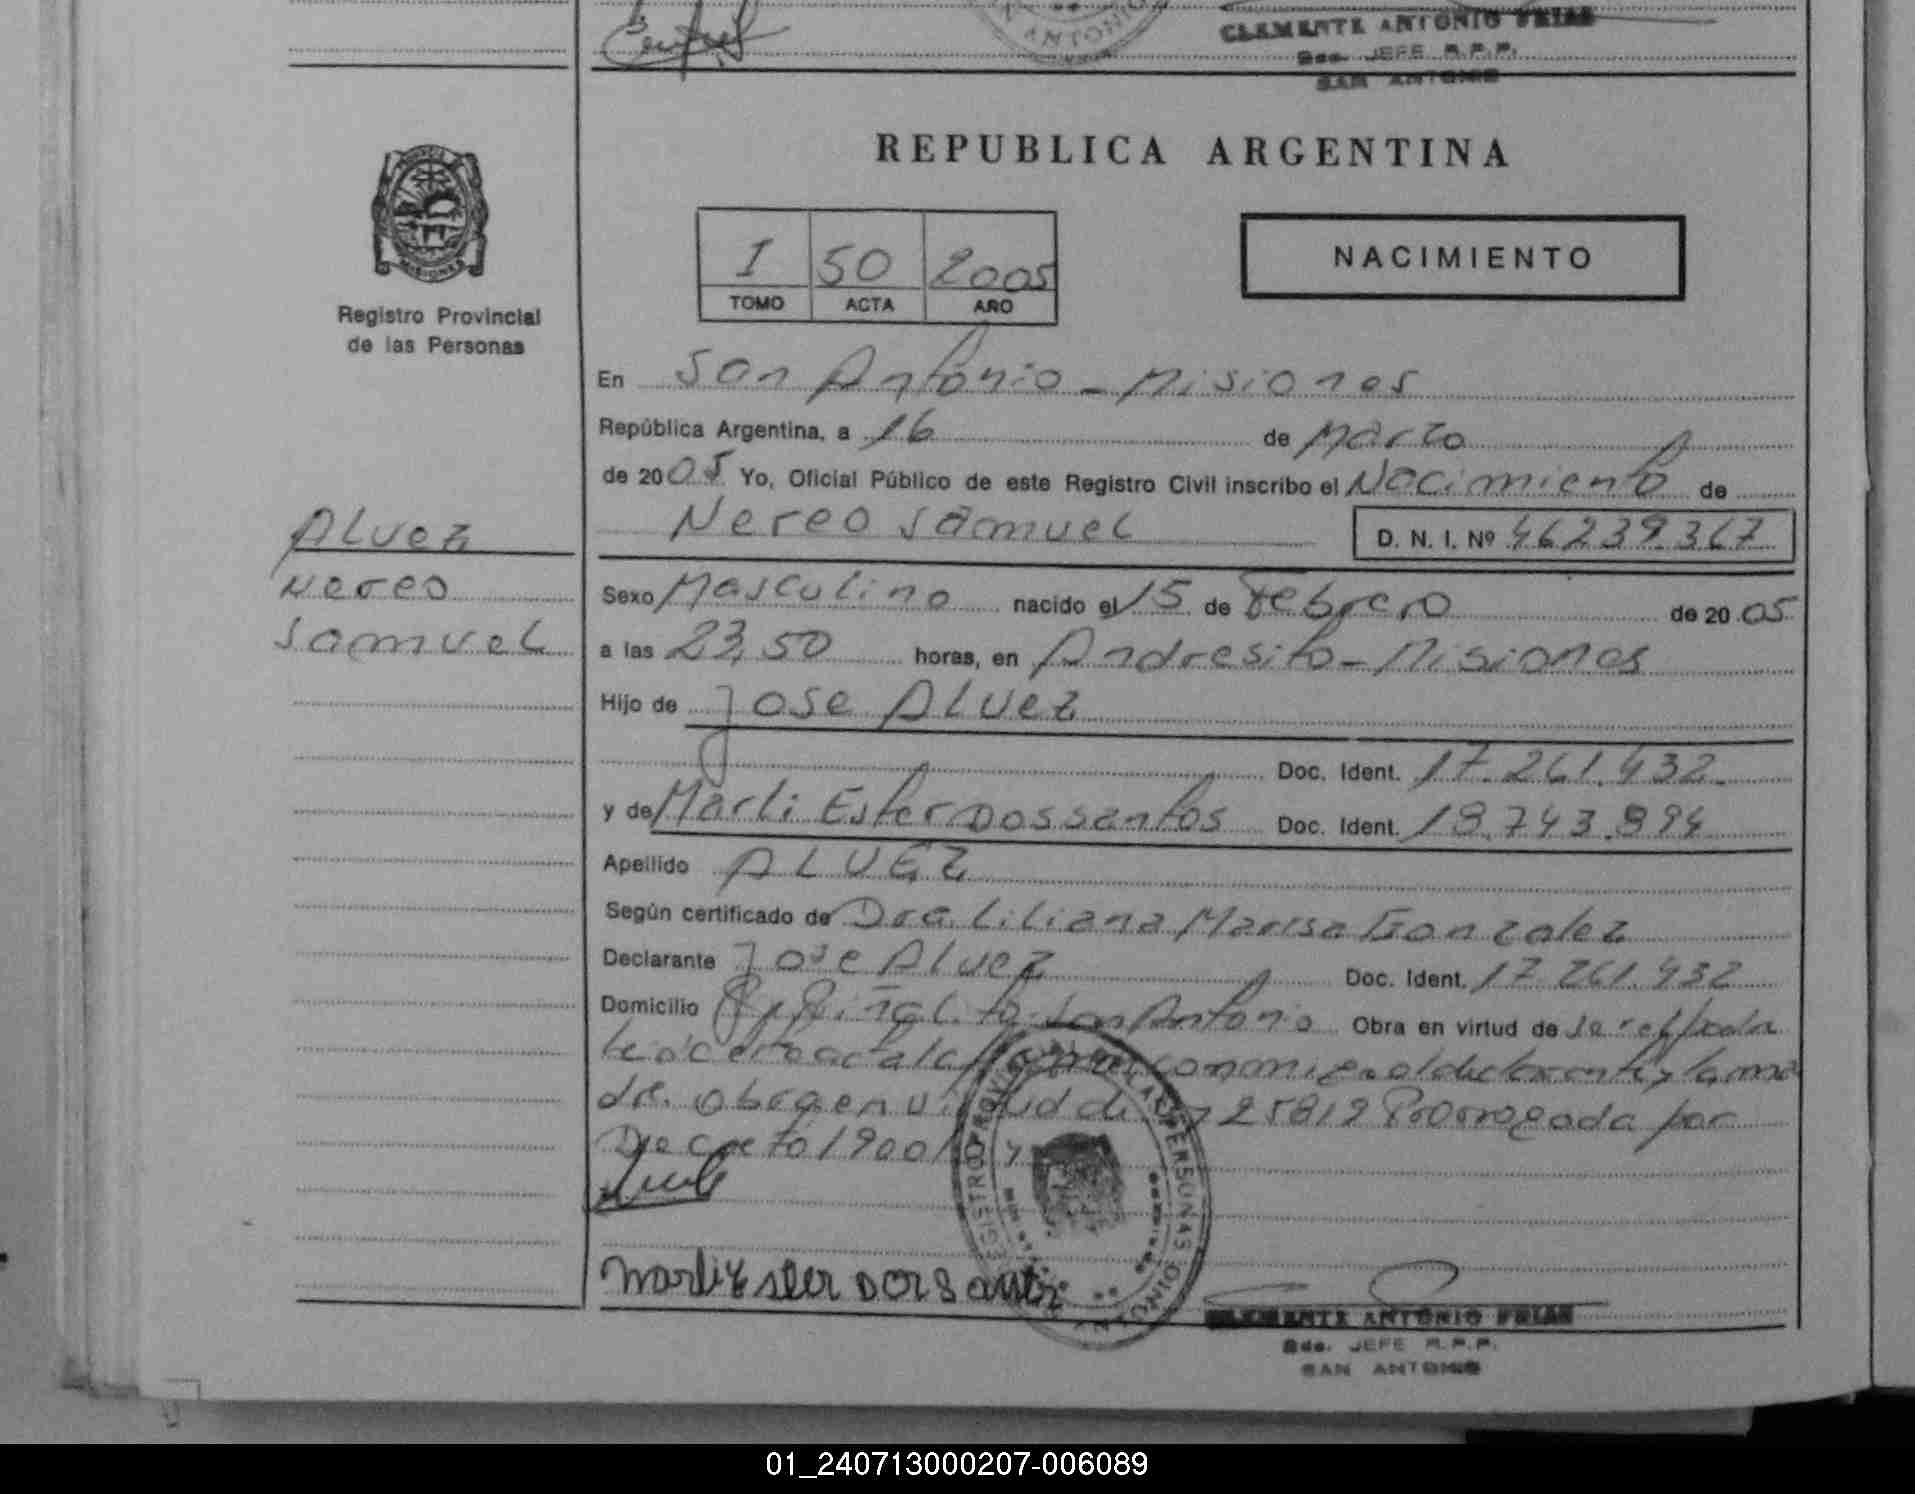 CLEMENTE ANTONIO FRIAS
JEFE R.P.P.
SAN ANTONIO
ANTONIO
REPUBLICA ARGENTINA
PROVINCIA
MISIONES
Registro Provincial
de las Personas
I 50 2005
TOMO ACTA AÑO
NACIMIENTO
En San Antonio - Misiones
República Argentina, a 16 de Marzo
de 2005 Yo, Oficial Público de este Registro Civil inscribo el Nacimiento de
Nereo Samuel D. N. I. Nº 46239367
Alvez
Nereo
Samuel
Sexo Masculino nacido el 15 de Febrero de 2005
a las 23,50 horas, en Andresito - Misiones
Hijo de Jose Alvez
Doc. Ident. 17.261.432
y de Marli Ester Dos santos Doc. Ident. 18.743.894
Apellido ALVEZ
Según certificado de Dra. Liliana Marisa Gonzalez
Declarante Jose Alvez Doc. Ident. 17.261.432
Domicilio San Antonio Obra en virtud de
acta la conmigo el declarante y la ma
dre. Obra en virtud de 25819 Prorrogada por
Decreto 1900
Marli Ester Dos Santos
CLEMENTE ANTONIO FRIAS
JEFE R.P.P.
SAN ANTONIO
01_240713000207-006089